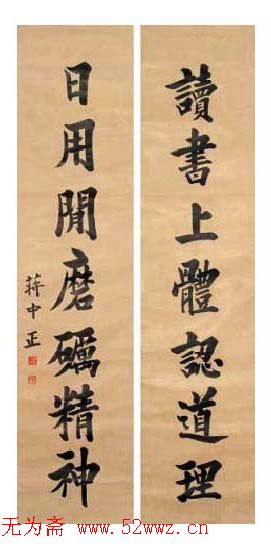 讀書上體認道理
日用閒磨礪精神
蔣中正
无为斋 www.52wwz.cn